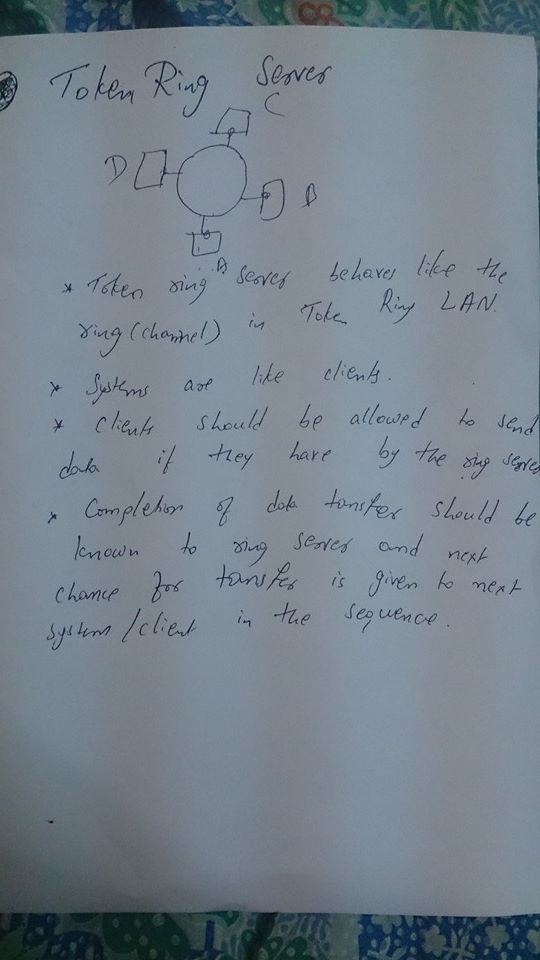 Token Ring Server
C
D
B
A
* Token ring server behaves like the
ring (channel) in Token Ring LAN.
* Systems are like clients.
* Clients should be allowed to send
data if they have by the ring server
* Completion of data transfer should be
known to ring server and next
chance for transfer is given to next
system/client in the sequence.